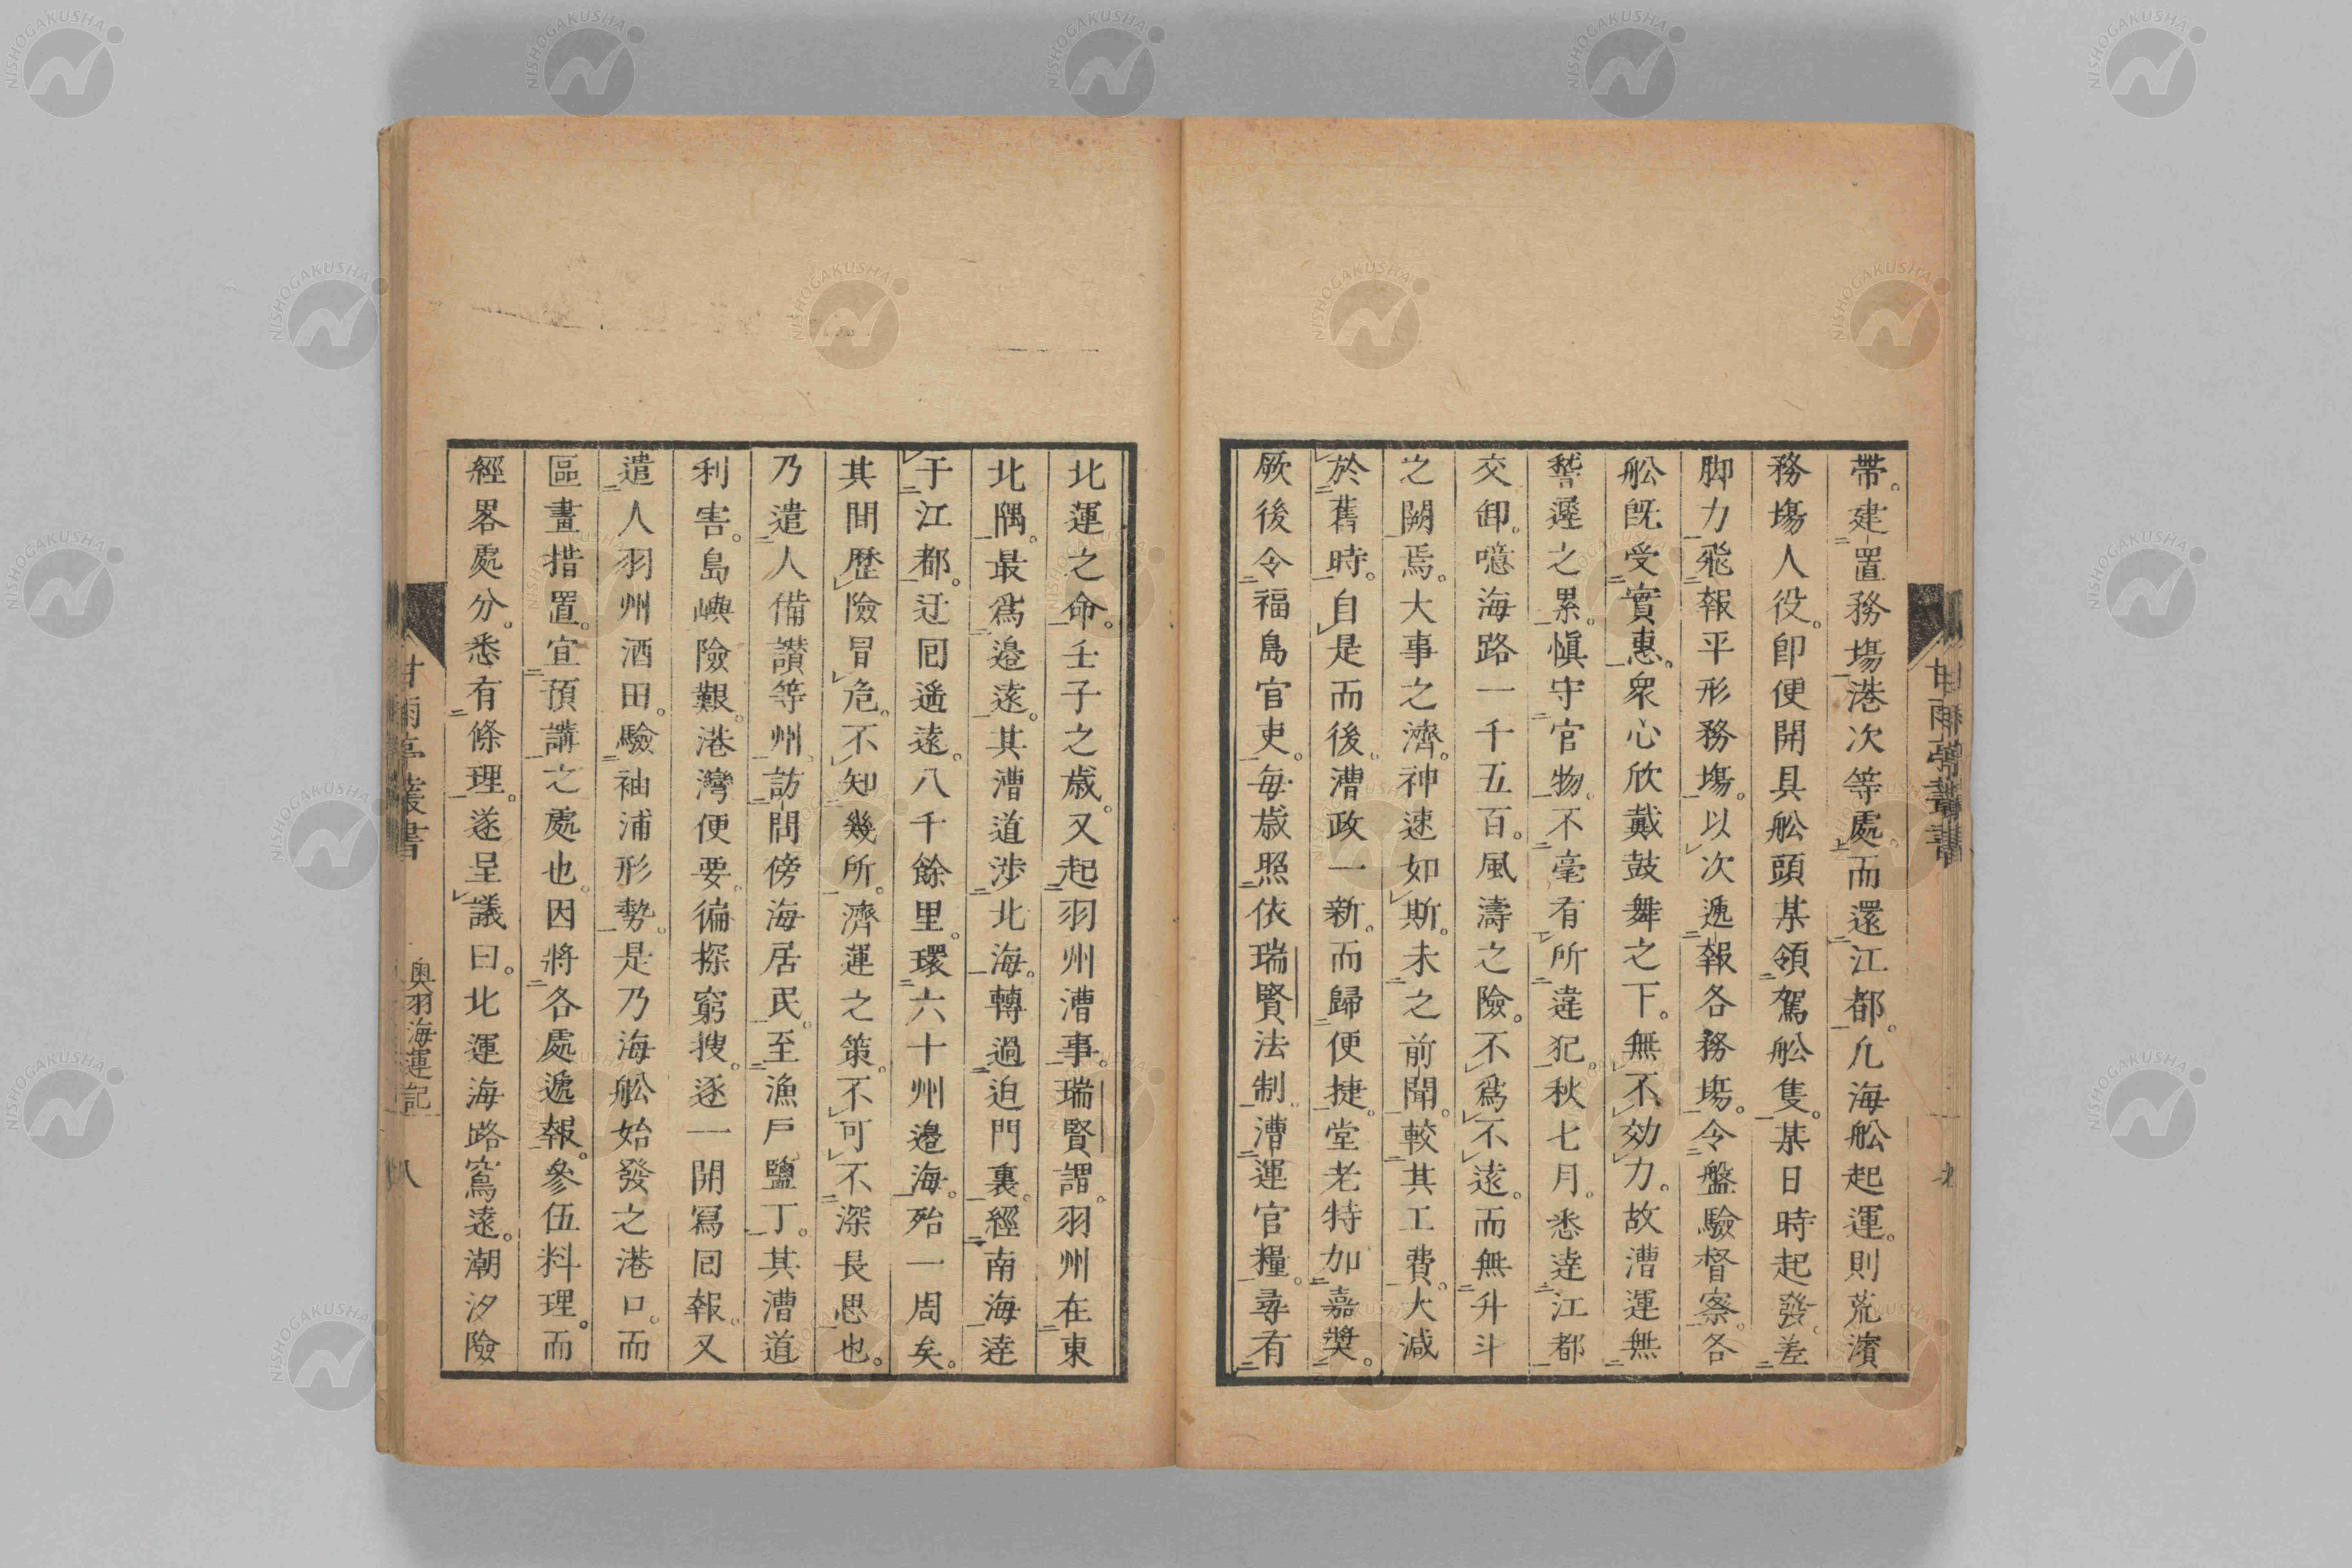 帶。建置務塲港次等處而還江都。凢海舩起運。則荒濱
務塲人役。卽便開具舩頭某領駕舩隻。某日時起發。差
脚力飛報平形務塲。以次遞報各務塲。令盤驗督察。各
舩旣受實惠。衆心欣戴鼓舞之下。無不効力。故漕運無
稽遲之累。愼守官物。不毫有所違犯。秋七月。悉達江都
交卸。噫海路一千五百。風濤之險。不爲不遠。而無升斗
之闕焉。大事之濟。神速如斯。未之前聞。較其工費。大減
於舊時。自是而後。漕政一新。而歸便捷。堂老特加嘉奬。
厥後令福島官吏。每歲照依瑞賢法制。漕運官糧。尋有
甘雨亭叢書
北運之命。壬子之歲。又起羽州漕事。瑞賢謂。羽州在東
北隅。最爲邉遠。其漕道涉北海。轉過迫門裏。經南海達
于江都。迂囘遙遠。八千餘里。環六十州邉海。殆一周矣。
其間歷險冒危。不知幾所。濟運之策。不可不深長思也。
乃遣人備讃等州。訪問傍海居民。至漁戶鹽丁。其漕道
利害。島嶼險艱。港灣便要。徧探窮搜。逐一開寫囘報。又
遣人羽州酒田。驗袖浦形勢。是乃海舩始發之港口。而
區畫措置。宜預講之處也。因將各處遞報。參伍料理。而
經畧處分。悉有條理。遂呈議曰。北運海路窵遠。潮汐險
甘雨亭叢書
奥羽海運記
八
NISHOGAKUSHA